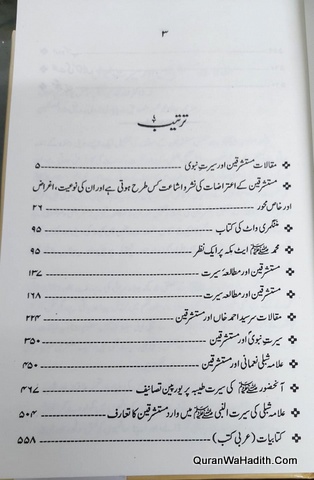 ۳
ترتیب
❖ مقالات مستشرقین اور سیرت نبوی ---------- ۵
❖ مستشرقین کے اعتراضات کی نشر و اشاعت کس طرح ہوتی ہے اور ان کی نوعیت، اغراض
اور خاص محور ---------- ۲۶
❖ منٹگمری واٹ کی کتاب ---------- ۹۵
❖ محمد ﷺ ایٹ مکہ پر ایک نظر ---------- ۹۵
❖ مستشرقین اور مطالعۂ سیرت ---------- ۱۳۷
❖ مستشرقین اور مطالعہ سیرت ---------- ۱۶۸
❖ مقالات سر سید احمد خاں اور مستشرقین ---------- ۲۲۴
❖ سیرت نبویؐ اور مستشرقین ---------- ۳۵۰
❖ علامہ شبلی نعمانی اور مستشرقین ---------- ۴۵۰
❖ آنحضور ﷺ کی سیرت طیبہ پر یورپین تصانیف ---------- ۴۶۷
❖ علامہ شبلی کی سیرت النبی ﷺ میں وارد مستشرقین کا تعارف ---------- ۵۰۴
❖ کتابیات (عربی کتب) ---------- ۵۵۸
QuranWaHadith.Com